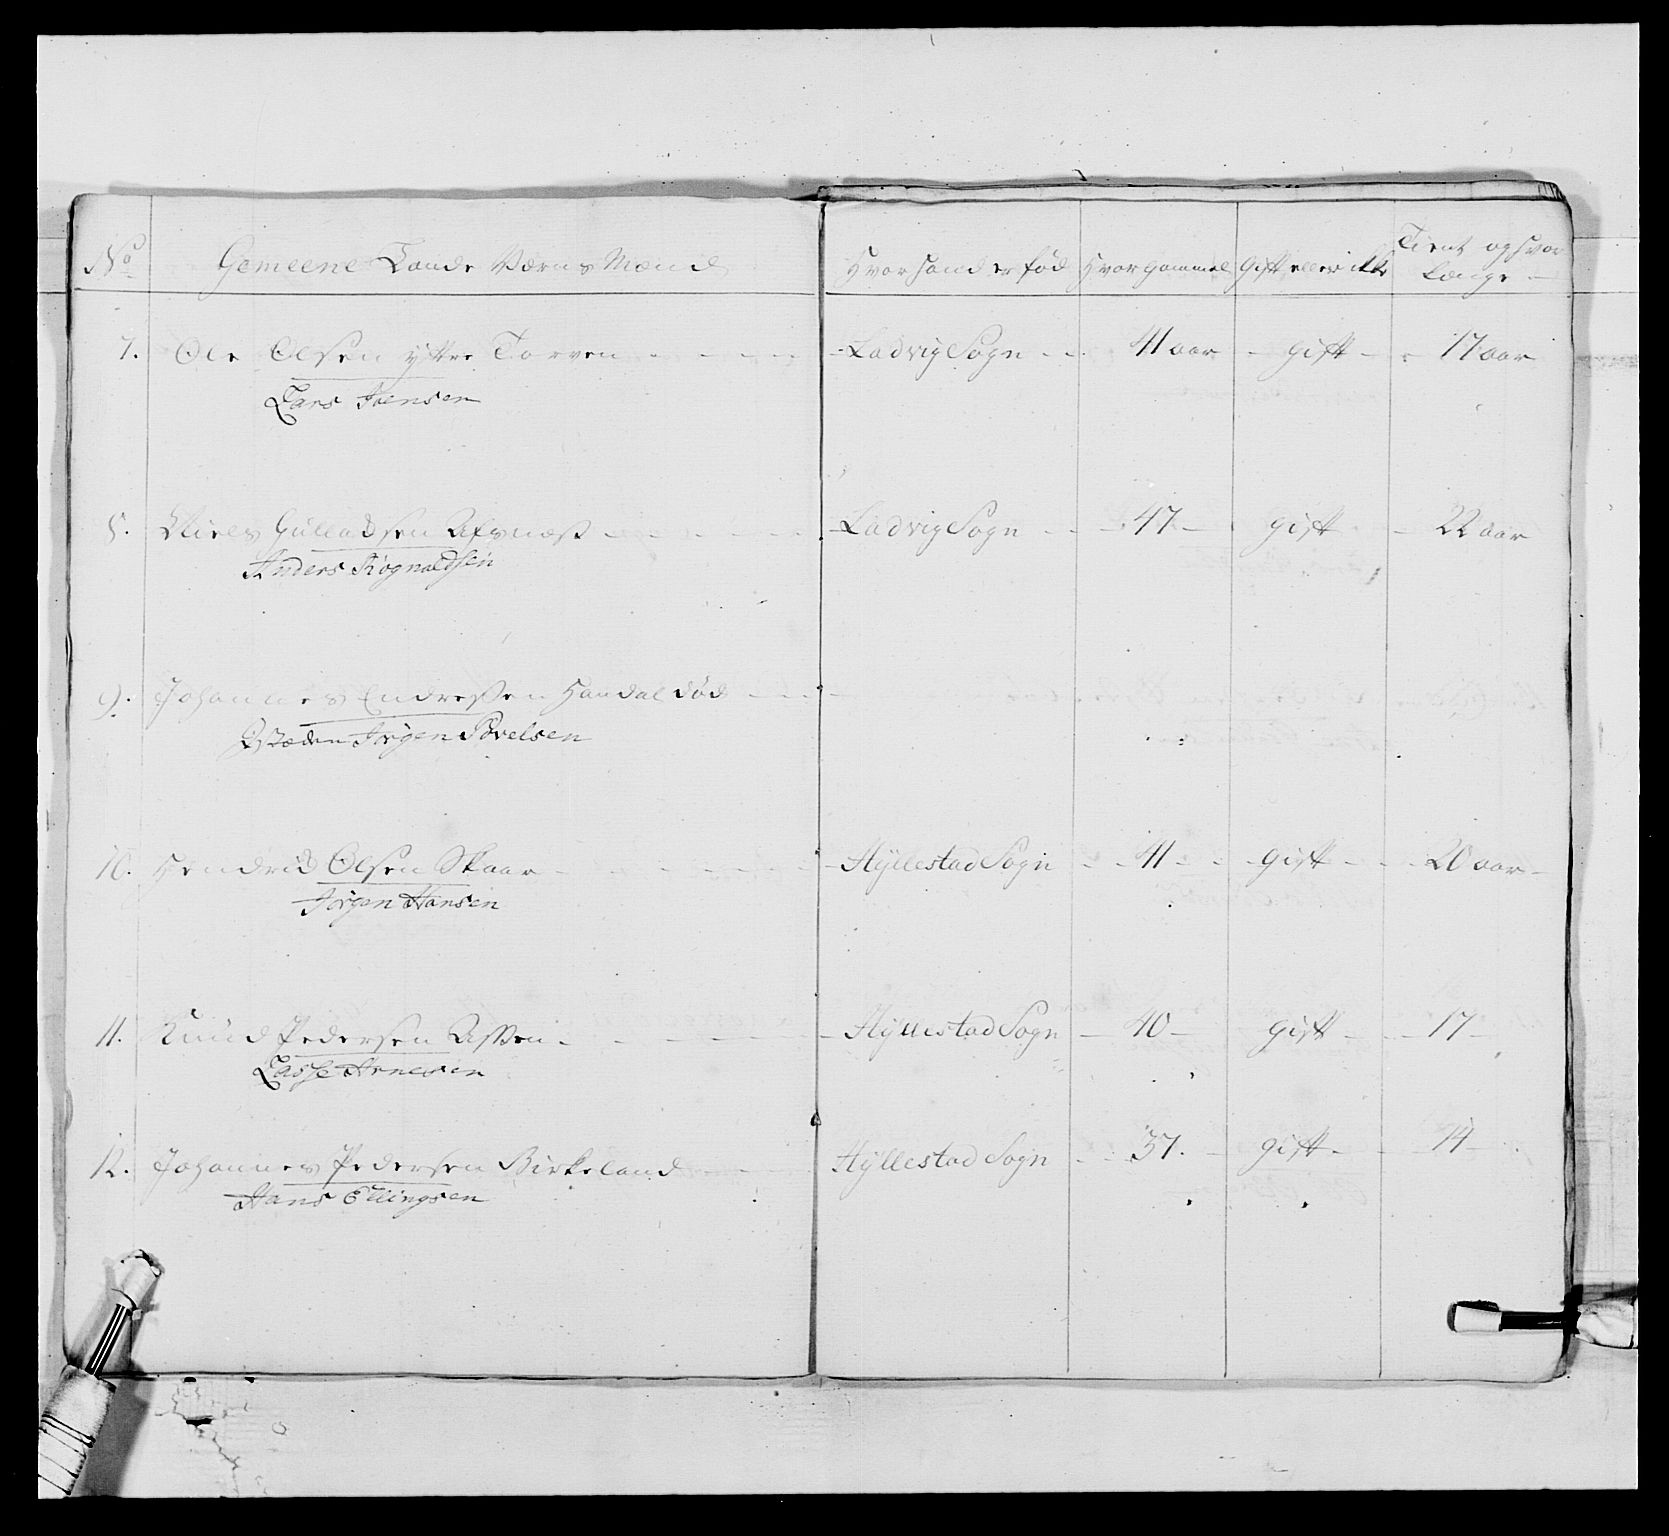 No Gemeene Lande Værns Mænd Hvor hand er fød Hvor gammel Gift eller ikke Tient og hvor længe
7. Ole Olsen yttre Torven Ladvig Sogn 41 aar gift 17 aar
Lars Joensen
8. Niels Gulladsen Alsnæss Ladvig Sogn 47 gift 22 aar
Anders Rognaldsen
9. Johannes Endresen Haudal død
Jørgen Povelsen
10. Hendrich Olsen Skaar Hyllestad Sogn 41 gift 20 aar
Jørgen Hansen
11. Knud Pedersen Hyllestad Sogn 40 gift 17
Lasse Arnesen
12. Johannes Pedersen Birkeland Hyllestad Sogn 37. gift 14
Hans Ellingsen